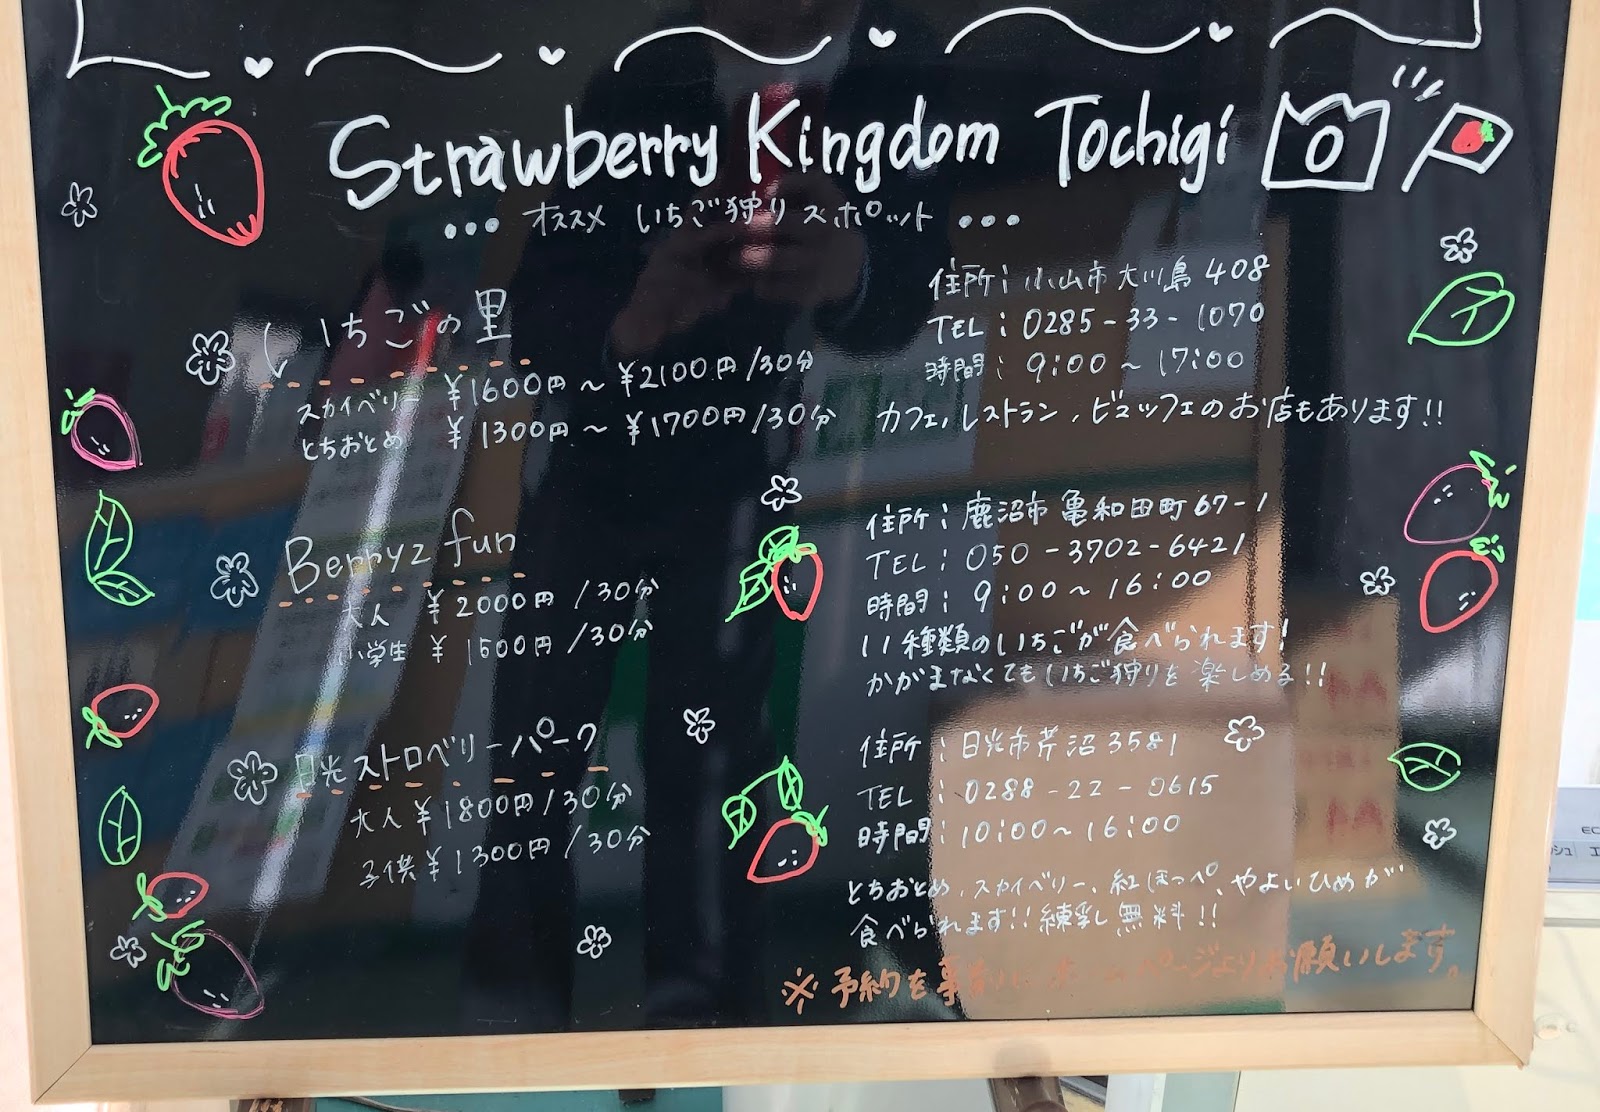 Strawberry Kingdom Tochigi
... オススメ いちご狩りスポット ...
いちごの里
スカイベリー ¥1600円〜¥2100円/30分
とちおとめ ¥1300円〜¥1700円/30分
住所:小山市大川島408
TEL:0285-33-1070
時間:9:00〜17:00
カフェ,レストラン,ビュッフェのお店もあります!!
Berryz fun
大人 ¥2000円/30分
小学生 ¥1500円/30分
住所:鹿沼市亀和田町67-1
TEL:050-3702-6421
時間:9:00〜16:00
11種類のいちごが食べられます!
かがまなくてもいちご狩りを楽しめる!!
日光ストロベリーパーク
大人¥1800円/30分
子供¥1300円/30分
住所:日光市芹沼3581
TEL:0288-22-0615
時間:10:00〜16:00
とちおとめ、スカイベリー、紅ほっぺ、やよいひめが
食べられます!!練乳し無料!!
※予約を事前にホームページよりお願いします。